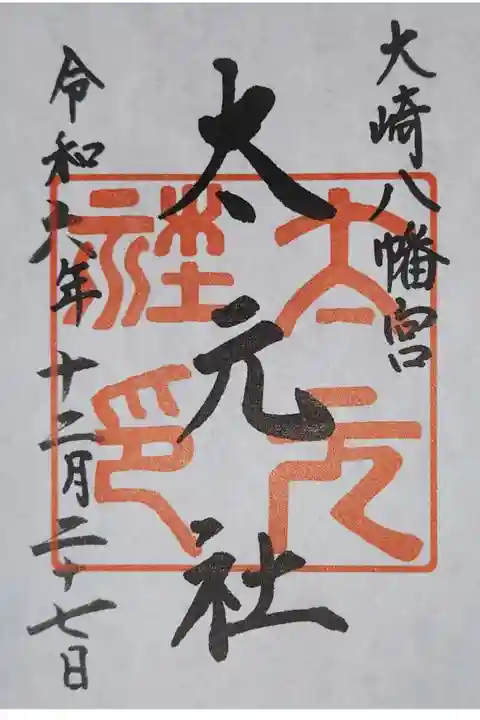 大崎八幡宮
太元社
太元社印
令和六年十二月二十七日